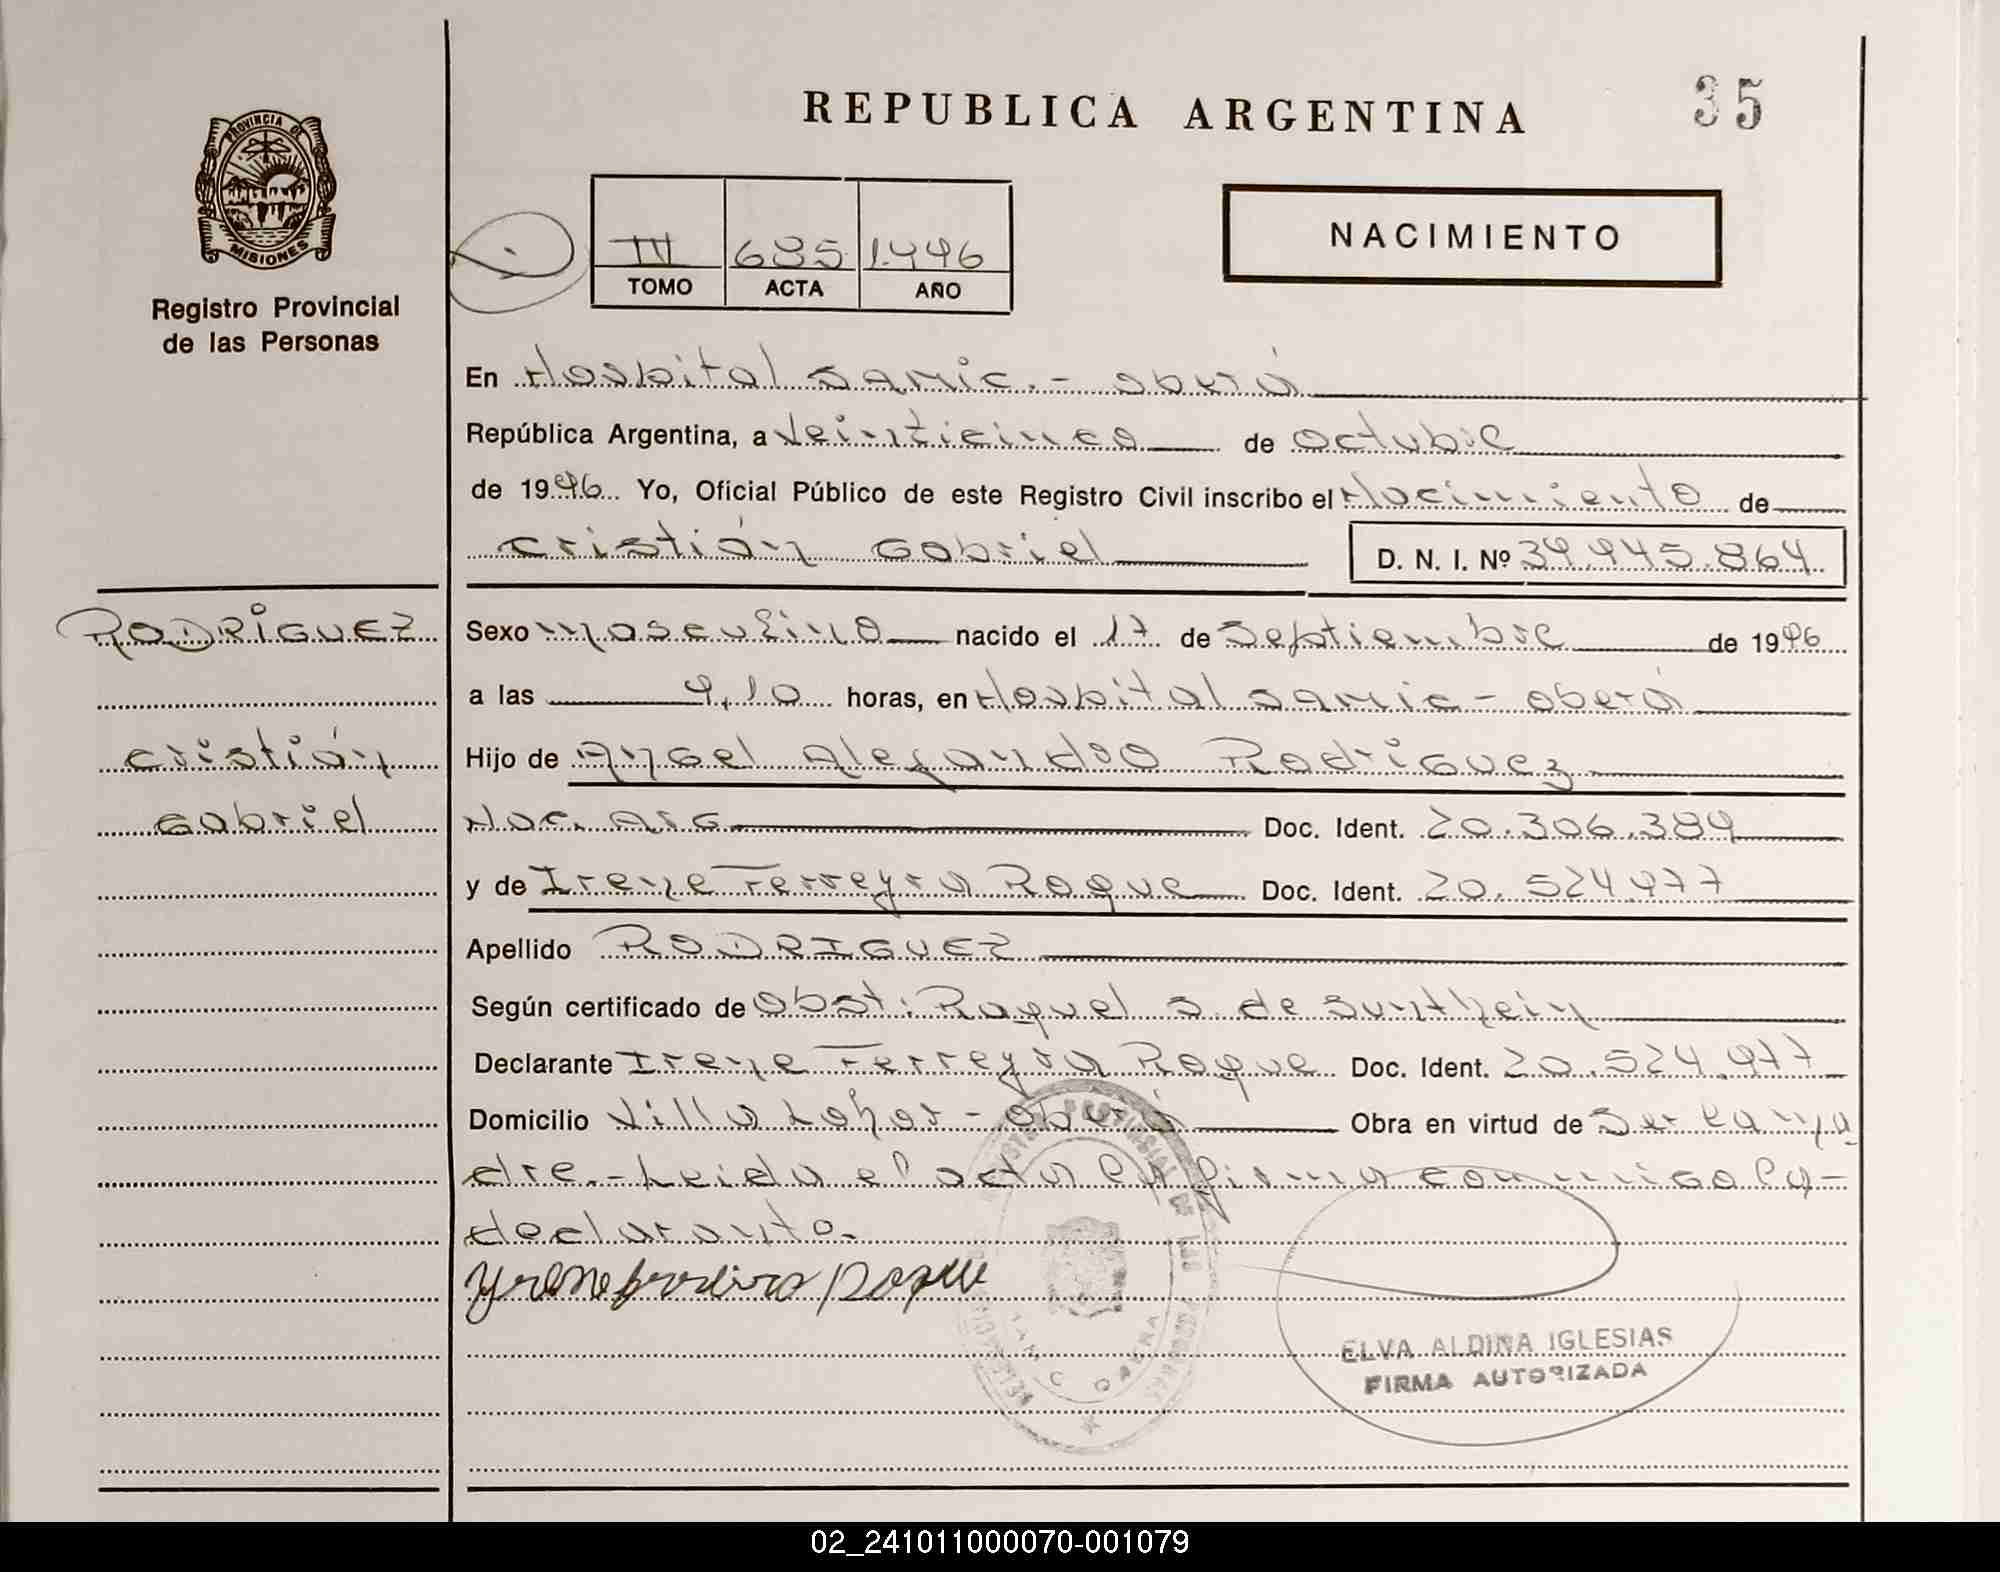 REPUBLICA ARGENTINA
35
PROVINCIA DE
MISIONES
Registro Provincial
de las Personas
III 685 1.996
TOMO ACTA AÑO
NACIMIENTO
En Hospital Samic. - oberá
República Argentina, a Veinticinco de octubre
de 1996 Yo, Oficial Público de este Registro Civil inscribo el Nacimiento de
Cristián Gabriel
D. N. I. Nº 39.945.864
RODRIGUEZ
Cristián
Gabriel
Sexo masculino nacido el 17 de Septiembre de 1996
a las 9,10 horas, en Hospital Samic - oberá
Hijo de Angel Alejandro Rodriguez
Nac. Arg Doc. Ident. 20.306.389
y de Irene Ferreyra Roque Doc. Ident. 20.524.977
Apellido RODRIGUEZ
Según certificado de Obst: Raquel S. de
Declarante Irene Ferreyra Roque Doc. Ident. 20.524.977
Domicilio Villa - oberá Obra en virtud de Ser la ma
dre.- Leida el acta la firma conmigo la-
declarante.
Roque
ELVA ALDINA IGLESIAS
FIRMA AUTORIZADA
02_241011000070-001079